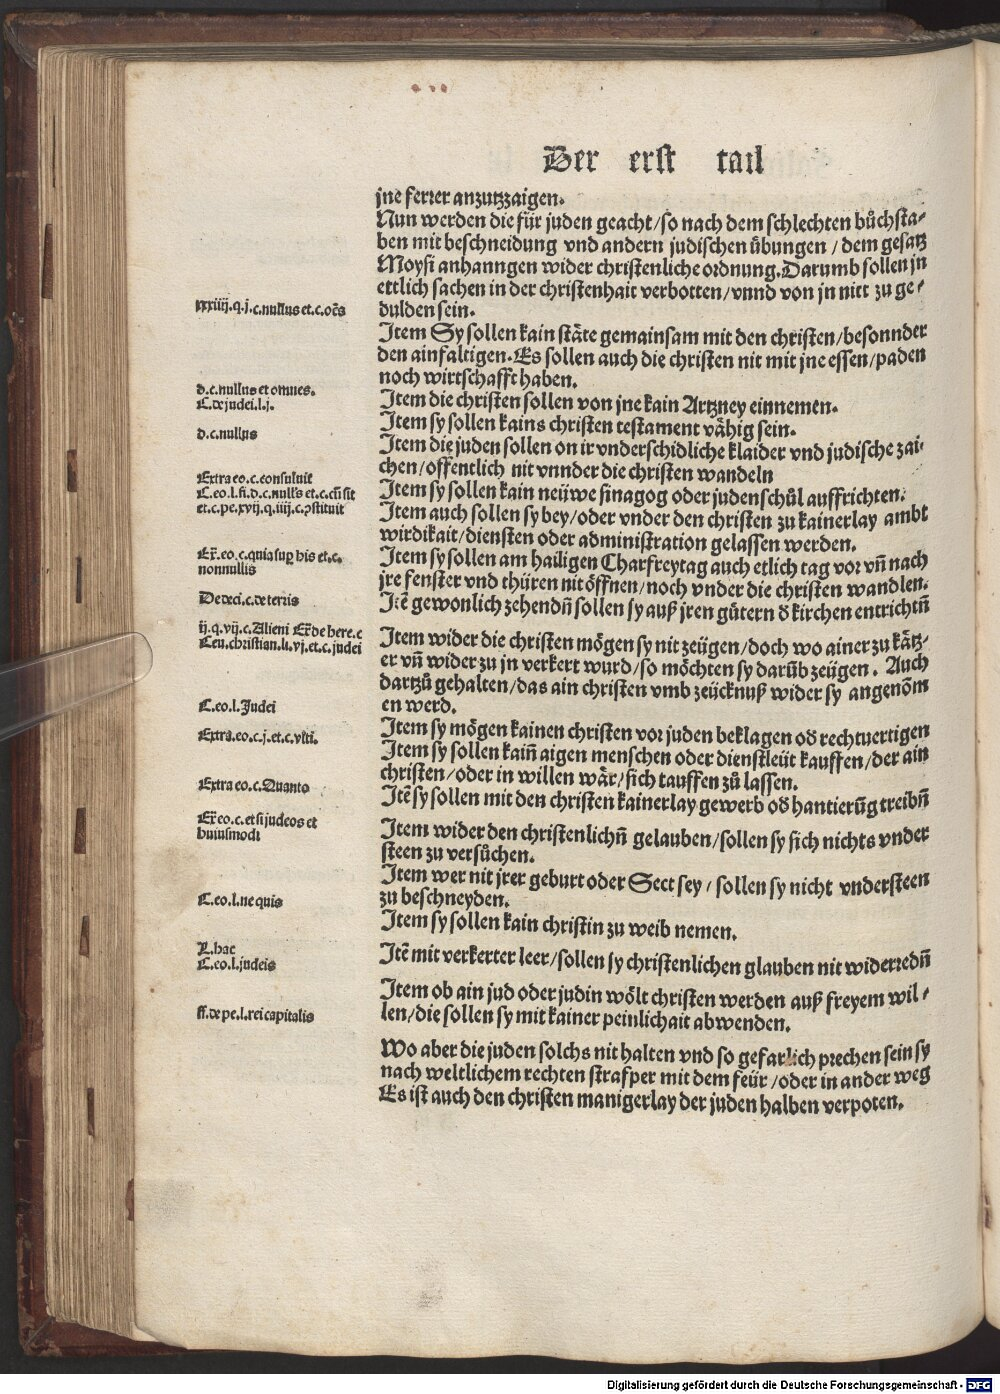 Der erst tail
jne ferrer anzutzzaigen.
Nun werden die für juden geacht/so nach dem schlechten bůchsta-
ben mit beschneidung vnd andern judischen übungen/dem gesatz
Moysi anhanngen wider christenliche ordnung.Darumb sollen jn
ettlich sachen in der christenhait verbotten/vnnd von jn nitt zu ge-
xxxiiij.q.j.c.nullus et.c.oēs
dulden sein.
Item Sy sollen kain stäte gemainsam mit den christen/besonnder
den ainfaltigen.Es sollen auch die christen nit mit jne essen/paden
noch wirtschafft haben.
d.c.nullus et omnes.
C.de judei.l.j.
Item die christen sollen von jne kain Artzney einnemen.
Item sy sollen kains christen testament vähig sein.
d.c.nullus
Item die juden sollen on ir vnderschidliche klaider vnd judische zai-
chen/offentlich nit vnnder die christen wandeln
Extra eo.c.consuluit
C.eo.l.fi.d.c.null's et.c.cū sit
Item sy sollen kain neüwe sinagog oder judenschůl auffrichten.
et.c.pe.xvij.q.iiij.c.ꝯstituit
Item auch sollen sy bey/oder vnder den christen zu kainerlay ambt
wirdikait/diensten oder administration gelassen werden.
Ex̄.eo.c.quia sup his et.c.
nonnullis
Item sy sollen am hailigen Charfreytag auch etlich tag vor vn̄ nach
jre fenster vnd thüren nit öffnen/noch vnder die christen wandlen.
De deci.c.de terris
Itē gewonlich zehendn̄ sollen sy auß jren gütern d̄ kirchen entrichtn̄
ij.q.vij.c.Alieni Ex̄ de here.c
C.cu.christian.li.vj.et.c.judei
Item wider die christen mögen sy nit zeügen/doch wo ainer zu kätz-
er vn̄ wider zu jn verkert wurd/so möchten sy darüb zeügen. Auch
dartzů gehalten/das ain christen vmb zeücknuß wider sy angenōm
en werd.
C.eo.l.Judei
Item sy mögen kainen christen vor juden beklagen od̄ rechtuertigen
Extra.eo.c.j.et.c.vlti.
Item sy sollen kain̄ aigen menschen oder dienstleüt kauffen/der ain
christen/oder in willen wär/sich tauffen zů lassen.
Extra eo.c.Quanto
Itē sy sollen mit den christen kainerlay gewerb od̄ hantierūg treibn̄
Ex̄ eo.c.et si judeos et
huiusmodi
Item wider den christenlichn̄ gelauben/sollen sy sich nichts vnder
steen zu versůchen.
Item wer nit jrer geburt oder Sect sey/sollen sy nicht vndersteen
C.eo.l.ne quis
zu beschneyden.
Item sy sollen kain christin zu weib nemen.
L.hac
C.eo.l.judeis
Itē mit verkerter leer/sollen sy christenlichen glauben nit widerredn̄
Item ob ain jud oder judin wölt christen werden auß freyem wil-
ff.de pe.l.rei capitalis
len/die sollen sy mit kainer peinlichait abwenden.
Wo aber die juden solchs nit halten vnd so gefarlich prechen sein sy
nach weltlichem rechten strafper mit dem feür/oder in ander weg
Es ist auch den christen manigerlay der juden halben verpoten.
Digitalisierung gefördert durch die Deutsche Forschungsgemeinschaft - DFG